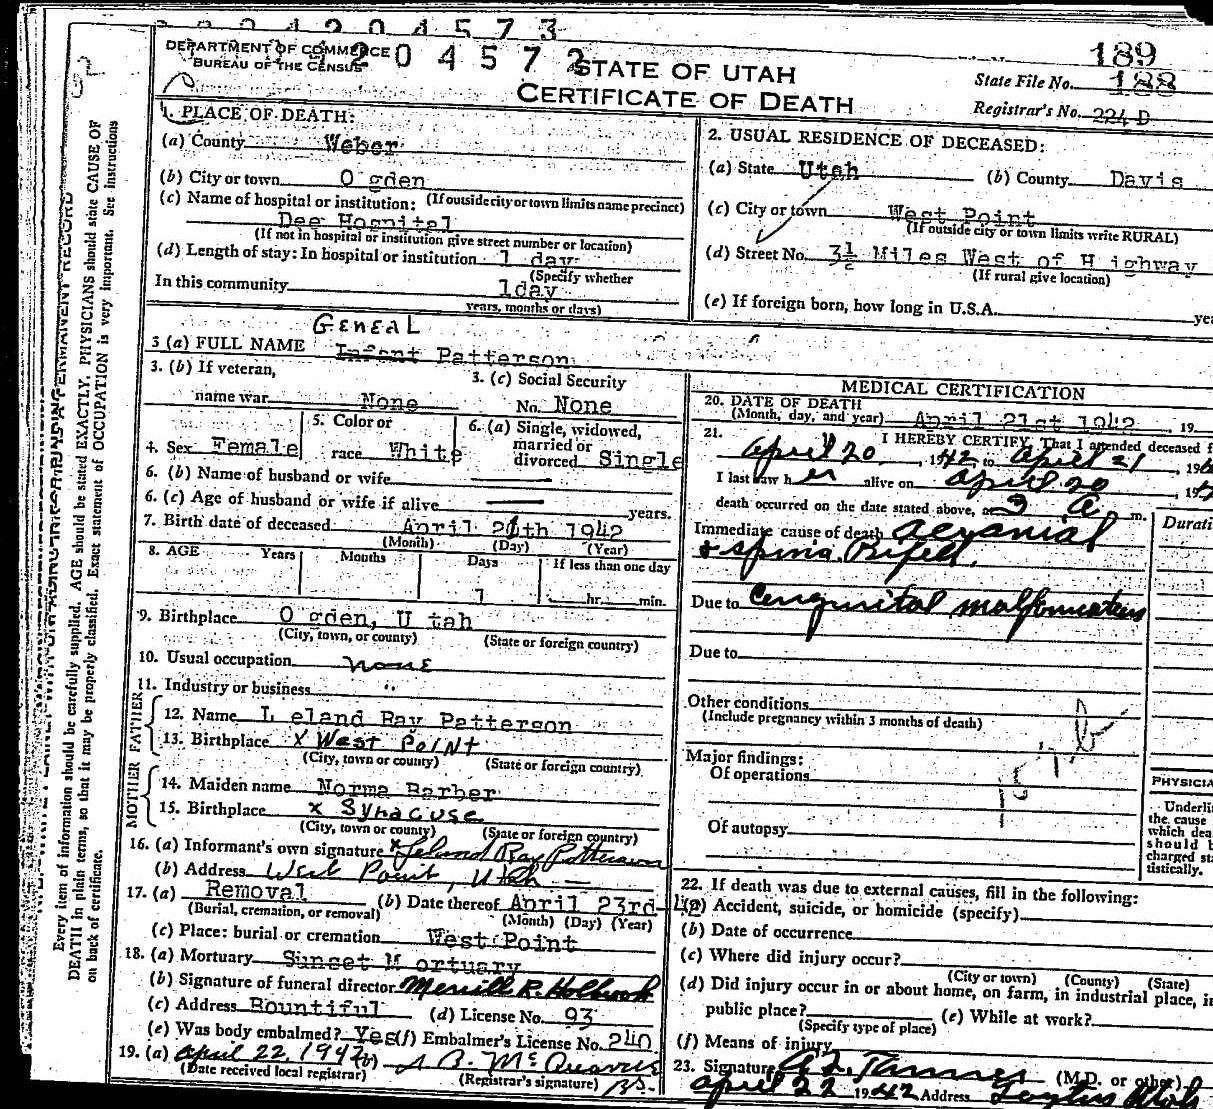 204573
DEPARTMENT OF COMMERCE
BUREAU OF THE CENSUS
204572
STATE OF UTAH
CERTIFICATE OF DEATH
189
State File No. 188
Registrar's No. 224 D
1. PLACE OF DEATH:
(a) County Weber
(b) City or town O gden
(c) Name of hospital or institution: (If outside city or town limits name precinct)
Dee Hospital
(If not in hospital or institution give street number or location)
(d) Length of stay: In hospital or institution 1 day
(Specify whether
In this community 1day
years, months or days)
2. USUAL RESIDENCE OF DECEASED:
(a) State Utah (b) County Davis
(c) City or town West Point
(If outside city or town limits write RURAL)
(d) Street No. 3½ Miles West of H ighway
(If rural give location)
(e) If foreign born, how long in U.S.A.
GENEAL
3 (a) FULL NAME Infant Patterson
3. (b) If veteran,
name war None
3. (c) Social Security
No. None
4. Sex Female
5. Color or
race White
6. (a) Single, widowed,
married or
divorced Single
6. (b) Name of husband or wife
6. (c) Age of husband or wife if alive years.
7. Birth date of deceased April 20th 1942
(Month) (Day) (Year)
8. AGE Years Months Days If less than one day
1 hr. min.
9. Birthplace O gden, U tah
(City, town, or county) (State or foreign country)
10. Usual occupation none
11. Industry or business "
FATHER
12. Name L eland Ray Patterson
13. Birthplace X West Point
(City, town or county) (State or foreign country)
MOTHER
14. Maiden name Norma Barber
15. Birthplace x Syracuse
(City, town or county) (State or foreign country)
16. (a) Informant's own signature x Leland Ray Patterson
(b) Address West Point, Utah
17. (a) Removal (b) Date thereof April 23rd
(Burial, cremation, or removal) (Month) (Day) (Year)
(c) Place: burial or cremation West Point
18. (a) Mortuary Sunset M ortuary
(b) Signature of funeral director Merrill R. Holbrook
(c) Address Bountiful (d) License No. 93
(e) Was body embalmed? Yes (f) Embalmer's License No. 240
19. (a) April 22, 1942 (b)
(Date received local registrar) (Registrar's signature)
MEDICAL CERTIFICATION
20. DATE OF DEATH
(Month, day, and year) April 21st 1942 , 19
21. I HEREBY CERTIFY, That I attended deceased f
April 20, 1942, to April 21, 19
I last saw her alive on April 20, 19
death occurred on the date stated above, at 2 A m.
Immediate cause of death acranial
& spina Bifida
Durati
Due to Congenital malformations
Due to
Other conditions
(Include pregnancy within 3 months of death)
157 b
Major findings:
Of operations
Of autopsy
PHYSICIA
Underli
the cause
which dea
should b
charged sta
tistically.
22. If death was due to external causes, fill in the following:
(a) Accident, suicide, or homicide (specify)
(b) Date of occurrence
(c) Where did injury occur?
(City or town) (County) (State)
(d) Did injury occur in or about home, on farm, in industrial place, in
public place? (e) While at work?
(Specify type of place)
(f) Means of injury
23. Signature A. Z. Tanner (M.D. or other)
April 22 1942 Address Layton Utah
Every item of information should be carefully supplied. AGE should be stated EXACTLY. PHYSICIANS should state CAUSE OF
DEATH in plain terms, so that it may be properly classified. Exact statement of OCCUPATION is very important. See instructions
on back of certificate.